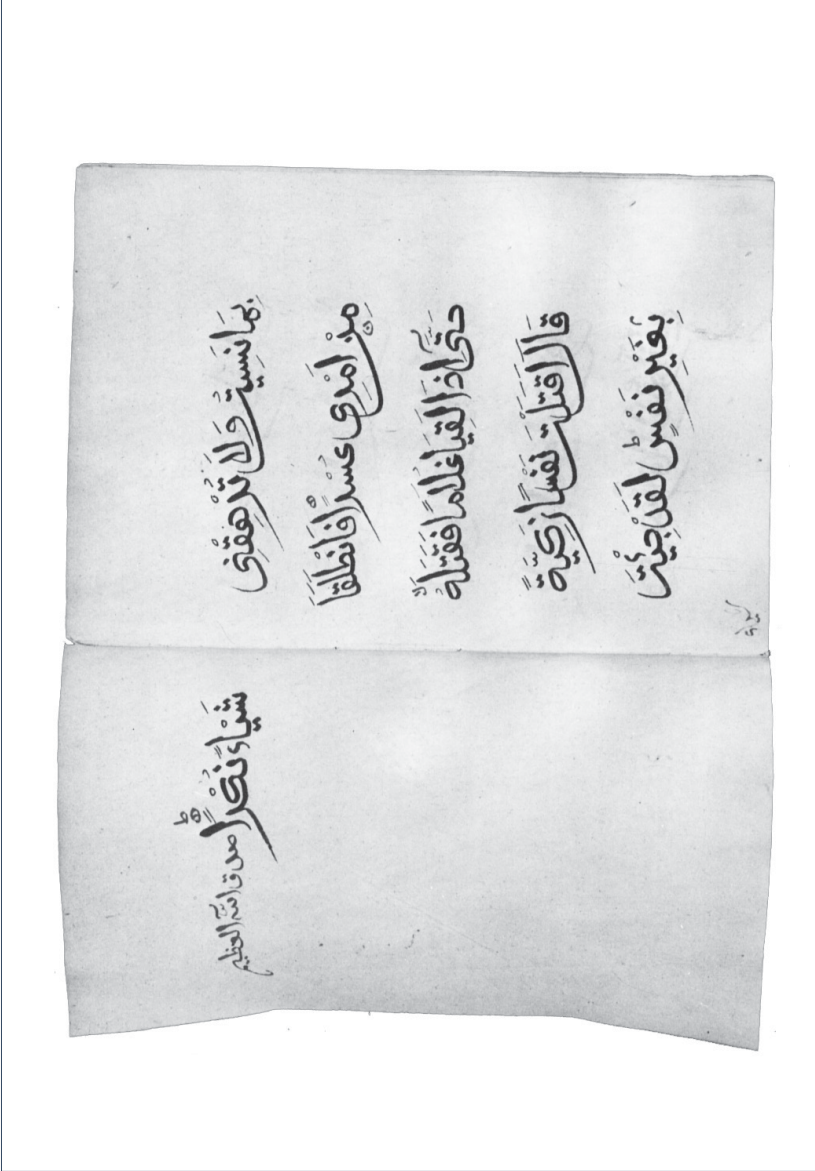 بِمَا نَسِيتُ وَلَا تُرْهِقْنِى
مِنْ اَمْرِى عُسْرًا فَانْطَلَقَا
حَتَّى اِذَا لَقِيَا غُلَامًا فَقَتَلَهُ
قَالَ اَقَتَلْتَ نَفْسًا زَكِيَّةً
بِغَيْرِ نَفْسٍ لَقَدْ جِئْتَ
شَيْاءً نُكْرًا
صدق الله العظيم